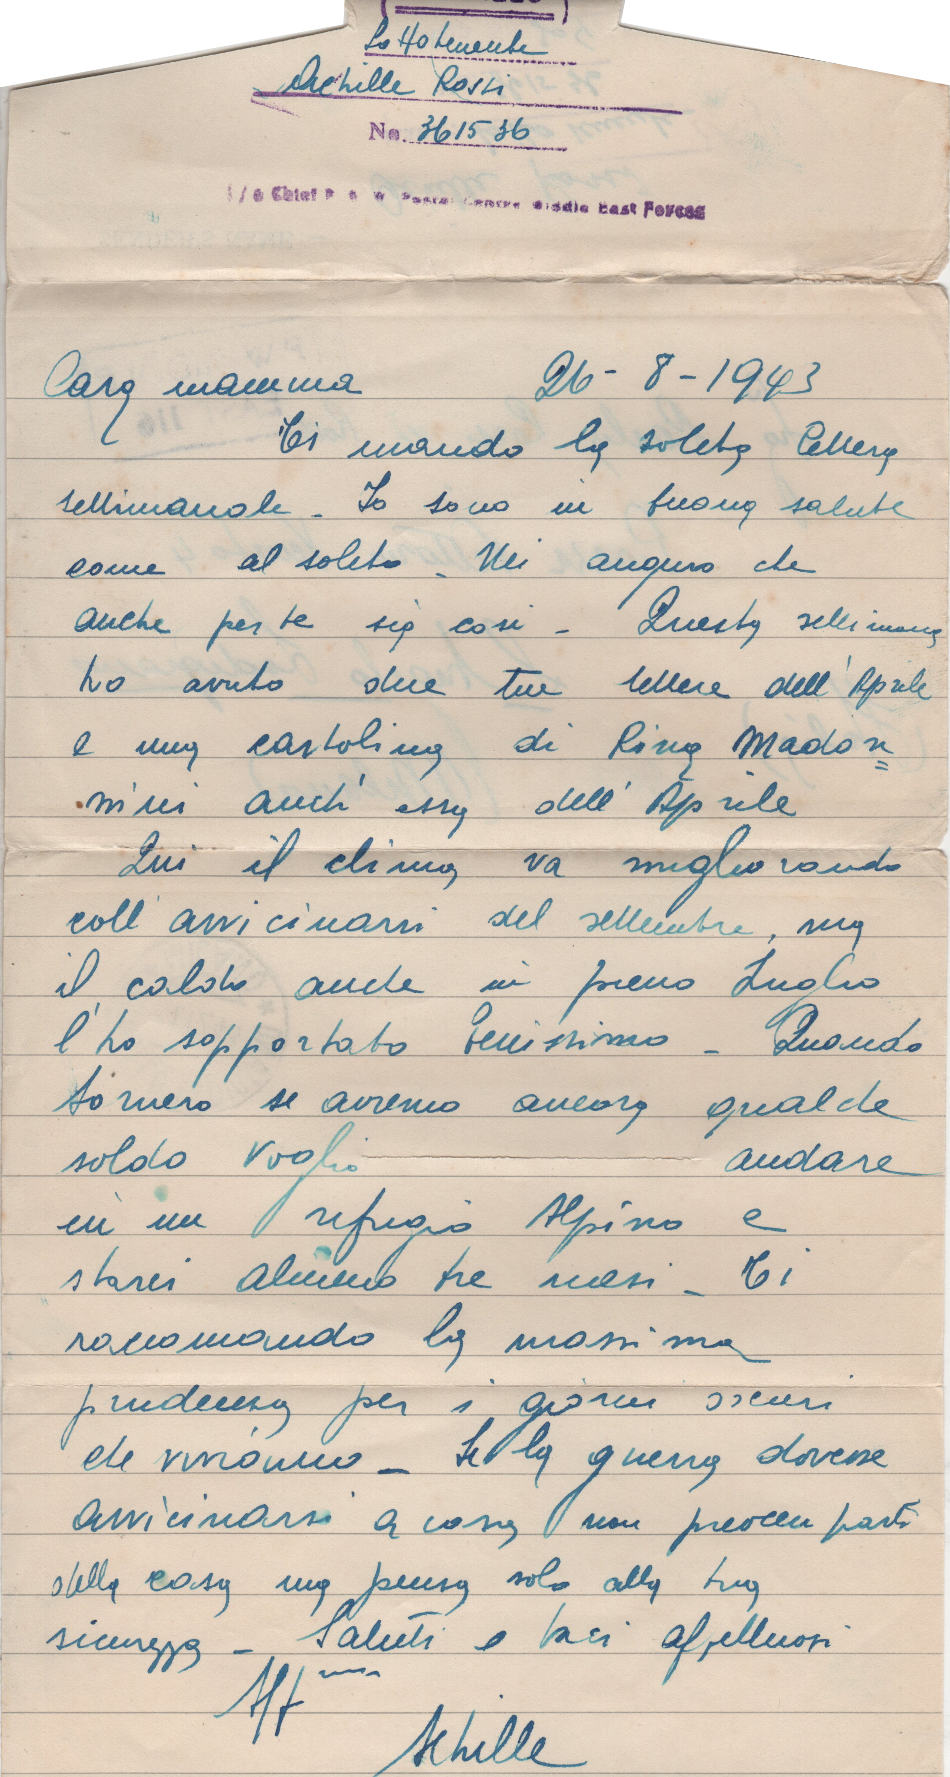 Sottotenente
Achille Rossi
No. 361536
Chief Postal Centre Middle East Forces
Cara mamma 26-8-1943
Ti mando la solita lettera
settimanale - Io sono in buona salute
come al solito - Mi auguro che
anche per te sia così - Questa settimana
ho avuto due tue lettere dell'Aprile
e una cartolina di Rina Madon
nini anch'essa dell'Aprile
Qui il clima va migliorando
coll'avvicinarsi del settembre, ma
il caldo anche in pieno Luglio
l'ho sopportato benissimo - Quando
tornerò se avremo ancora qualche
soldo voglio andare
in un rifugio Alpino e
starci almeno tre mesi - Ti
raccomando la massima
prudenza per i giorni oscuri
che verranno - Se la guerra dovesse
avvicinarsi a casa non preoccuparti
della casa ma pensa solo alla tua
sicurezza - Saluti e baci affettuosi
Aff
Achille